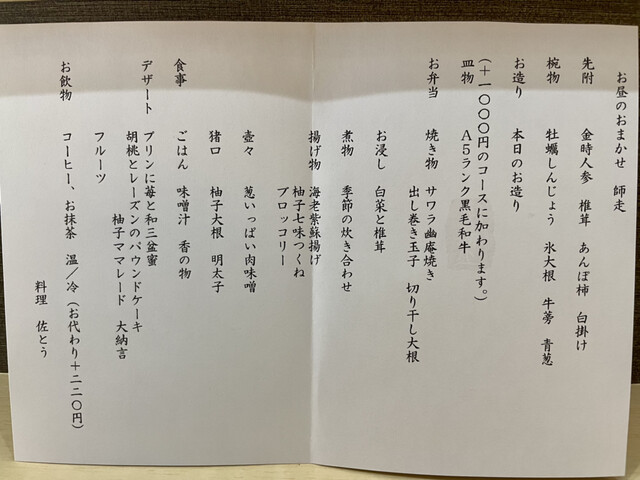 お昼のおまかせ 師走
先附 金時人参 椎茸 あんぽ柿 白掛け
椀物 牡蠣しんじょう 氷大根 牛蒡 青葱
お造り 本日のお造り
(+一〇〇〇円のコースに加わります。)
皿物 A5ランク黒毛和牛
お弁当 焼き物 サワラ幽庵焼き
出し巻き玉子 切り干し大根
お浸し 白菜と椎茸
煮物 季節の炊き合わせ
揚げ物 海老紫蘇揚げ
柚子七味つくね
ブロッコリー
壺々 葱いっぱい肉味噌
猪口 柚子大根 明太子
食事 ごはん 味噌汁 香の物
デザート プリンに苺と和三盆蜜
胡桃とレーズンのパウンドケーキ
柚子ママレード 大納言
フルーツ
お飲物 コーヒー、お抹茶 温/冷(お代わり+二二〇円)
料理 佐とう